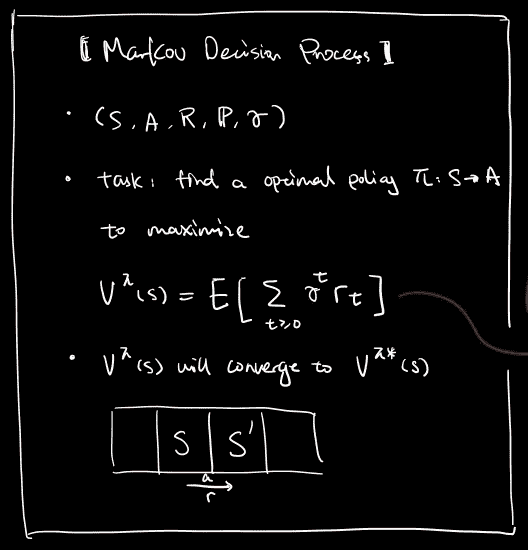 【Markov Decision Process】
· (S, A, R, ℙ, γ)
· task: find a optimal policy π: S→A
to maximize
V^π(s) = E[∑_{t≥0} γ^t r_t]
· V^π(s) will converge to V^{π*}(s)
S S'
a
r